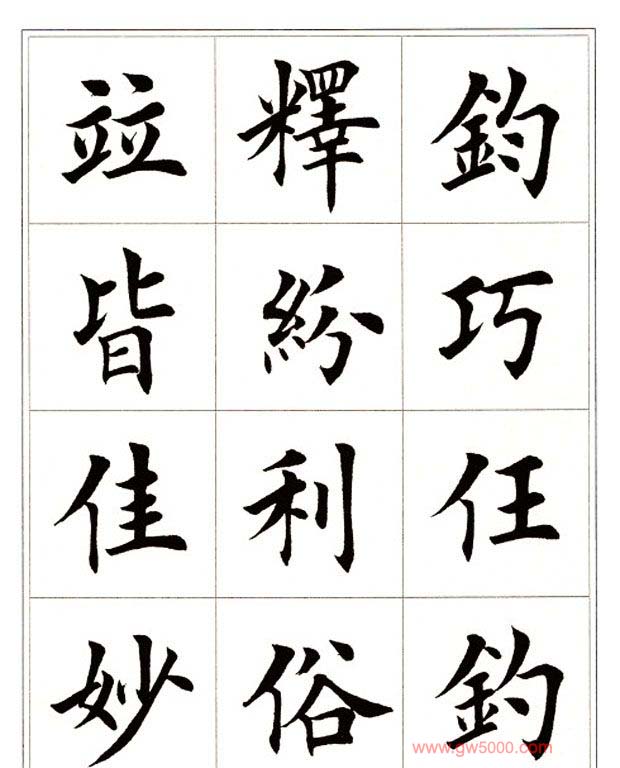 鈞巧任釣
釋紛利俗
竝皆佳妙
www.gw5000.com